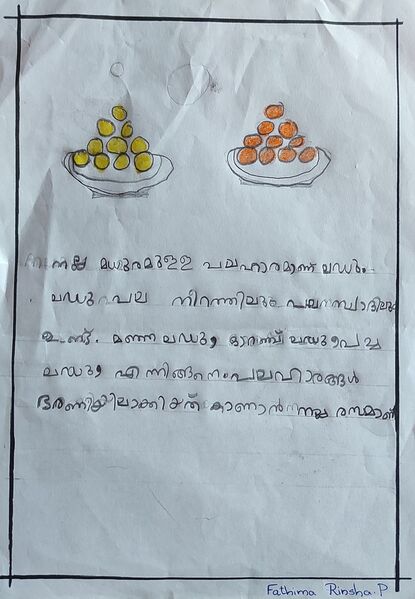 നല്ല മധുരമുളള പലഹാരമാണ് ലഡു.
ലഡു പല നിറത്തിലും പല സ്വാദിലും
ഉണ്ട്. മഞ്ഞ ലഡു, ഓറഞ്ച് ലഡു, പച്ച
ലഡു, എന്നിങ്ങനെ പലഹാരങ്ങൾ
ഭരണിയിലാക്കിയത് കാണാൻ നല്ല രസമാണ്
Fathima Rinsha.P